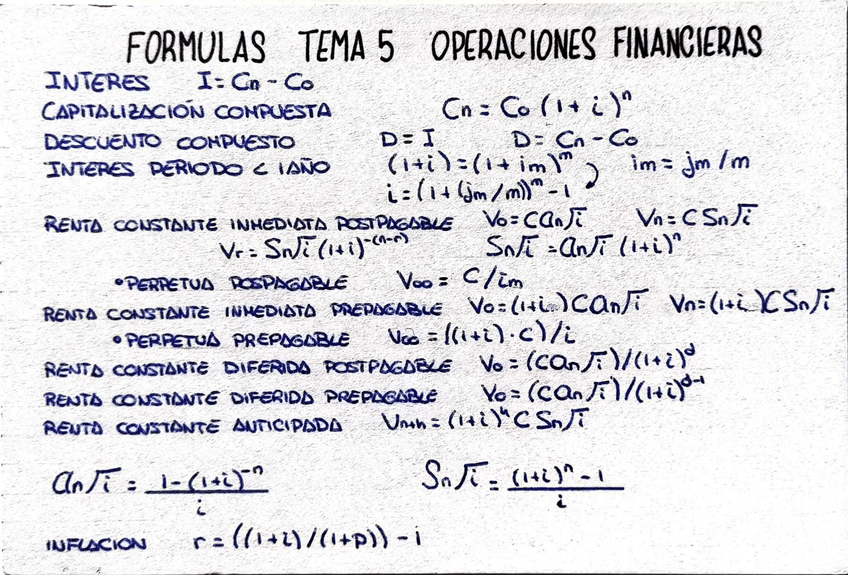 FORMULAS TEMA 5 OPERACIONES FINANCIERAS
INTERES I = Cn - Co
CAPITALIZACIÓN COMPUESTA Cn = Co (1+i)^n
DESCUENTO COMPUESTO D = I D = Cn - Co
INTERES PERIODO < 1AÑO (1+i) = (1+im)^m im = jm/m
i = (1+(jm/m))^m - 1
RENTA CONSTANTE INMEDIATA POSTPAGABLE Vo = C an⌐i Vn = C Sn⌐i
Vr = Sn⌐i (1+i)^-(n-r) Sn⌐i = an⌐i (1+i)^n
• PERPETUA POSPAGABLE V∞ = C/im
RENTA CONSTANTE INMEDIATA PREPAGABLE Vo = (1+i) C an⌐i Vn = (1+i) C Sn⌐i
• PERPETUA PREPAGABLE V∞ = ((1+i)·C)/i
RENTA CONSTANTE DIFERIDA POSTPAGABLE Vo = (C an⌐i)/(1+i)^d
RENTA CONSTANTE DIFERIDA PREPAGABLE Vo = (C an⌐i)/(1+i)^d-1
RENTA CONSTANTE ANTICIPADA Vn+h = (1+i)^h C Sn⌐i
an⌐i = 1-(1+i)^-n / i Sn⌐i = (1+i)^n - 1 / i
INFLACION r = ((1+i)/(1+p)) - i